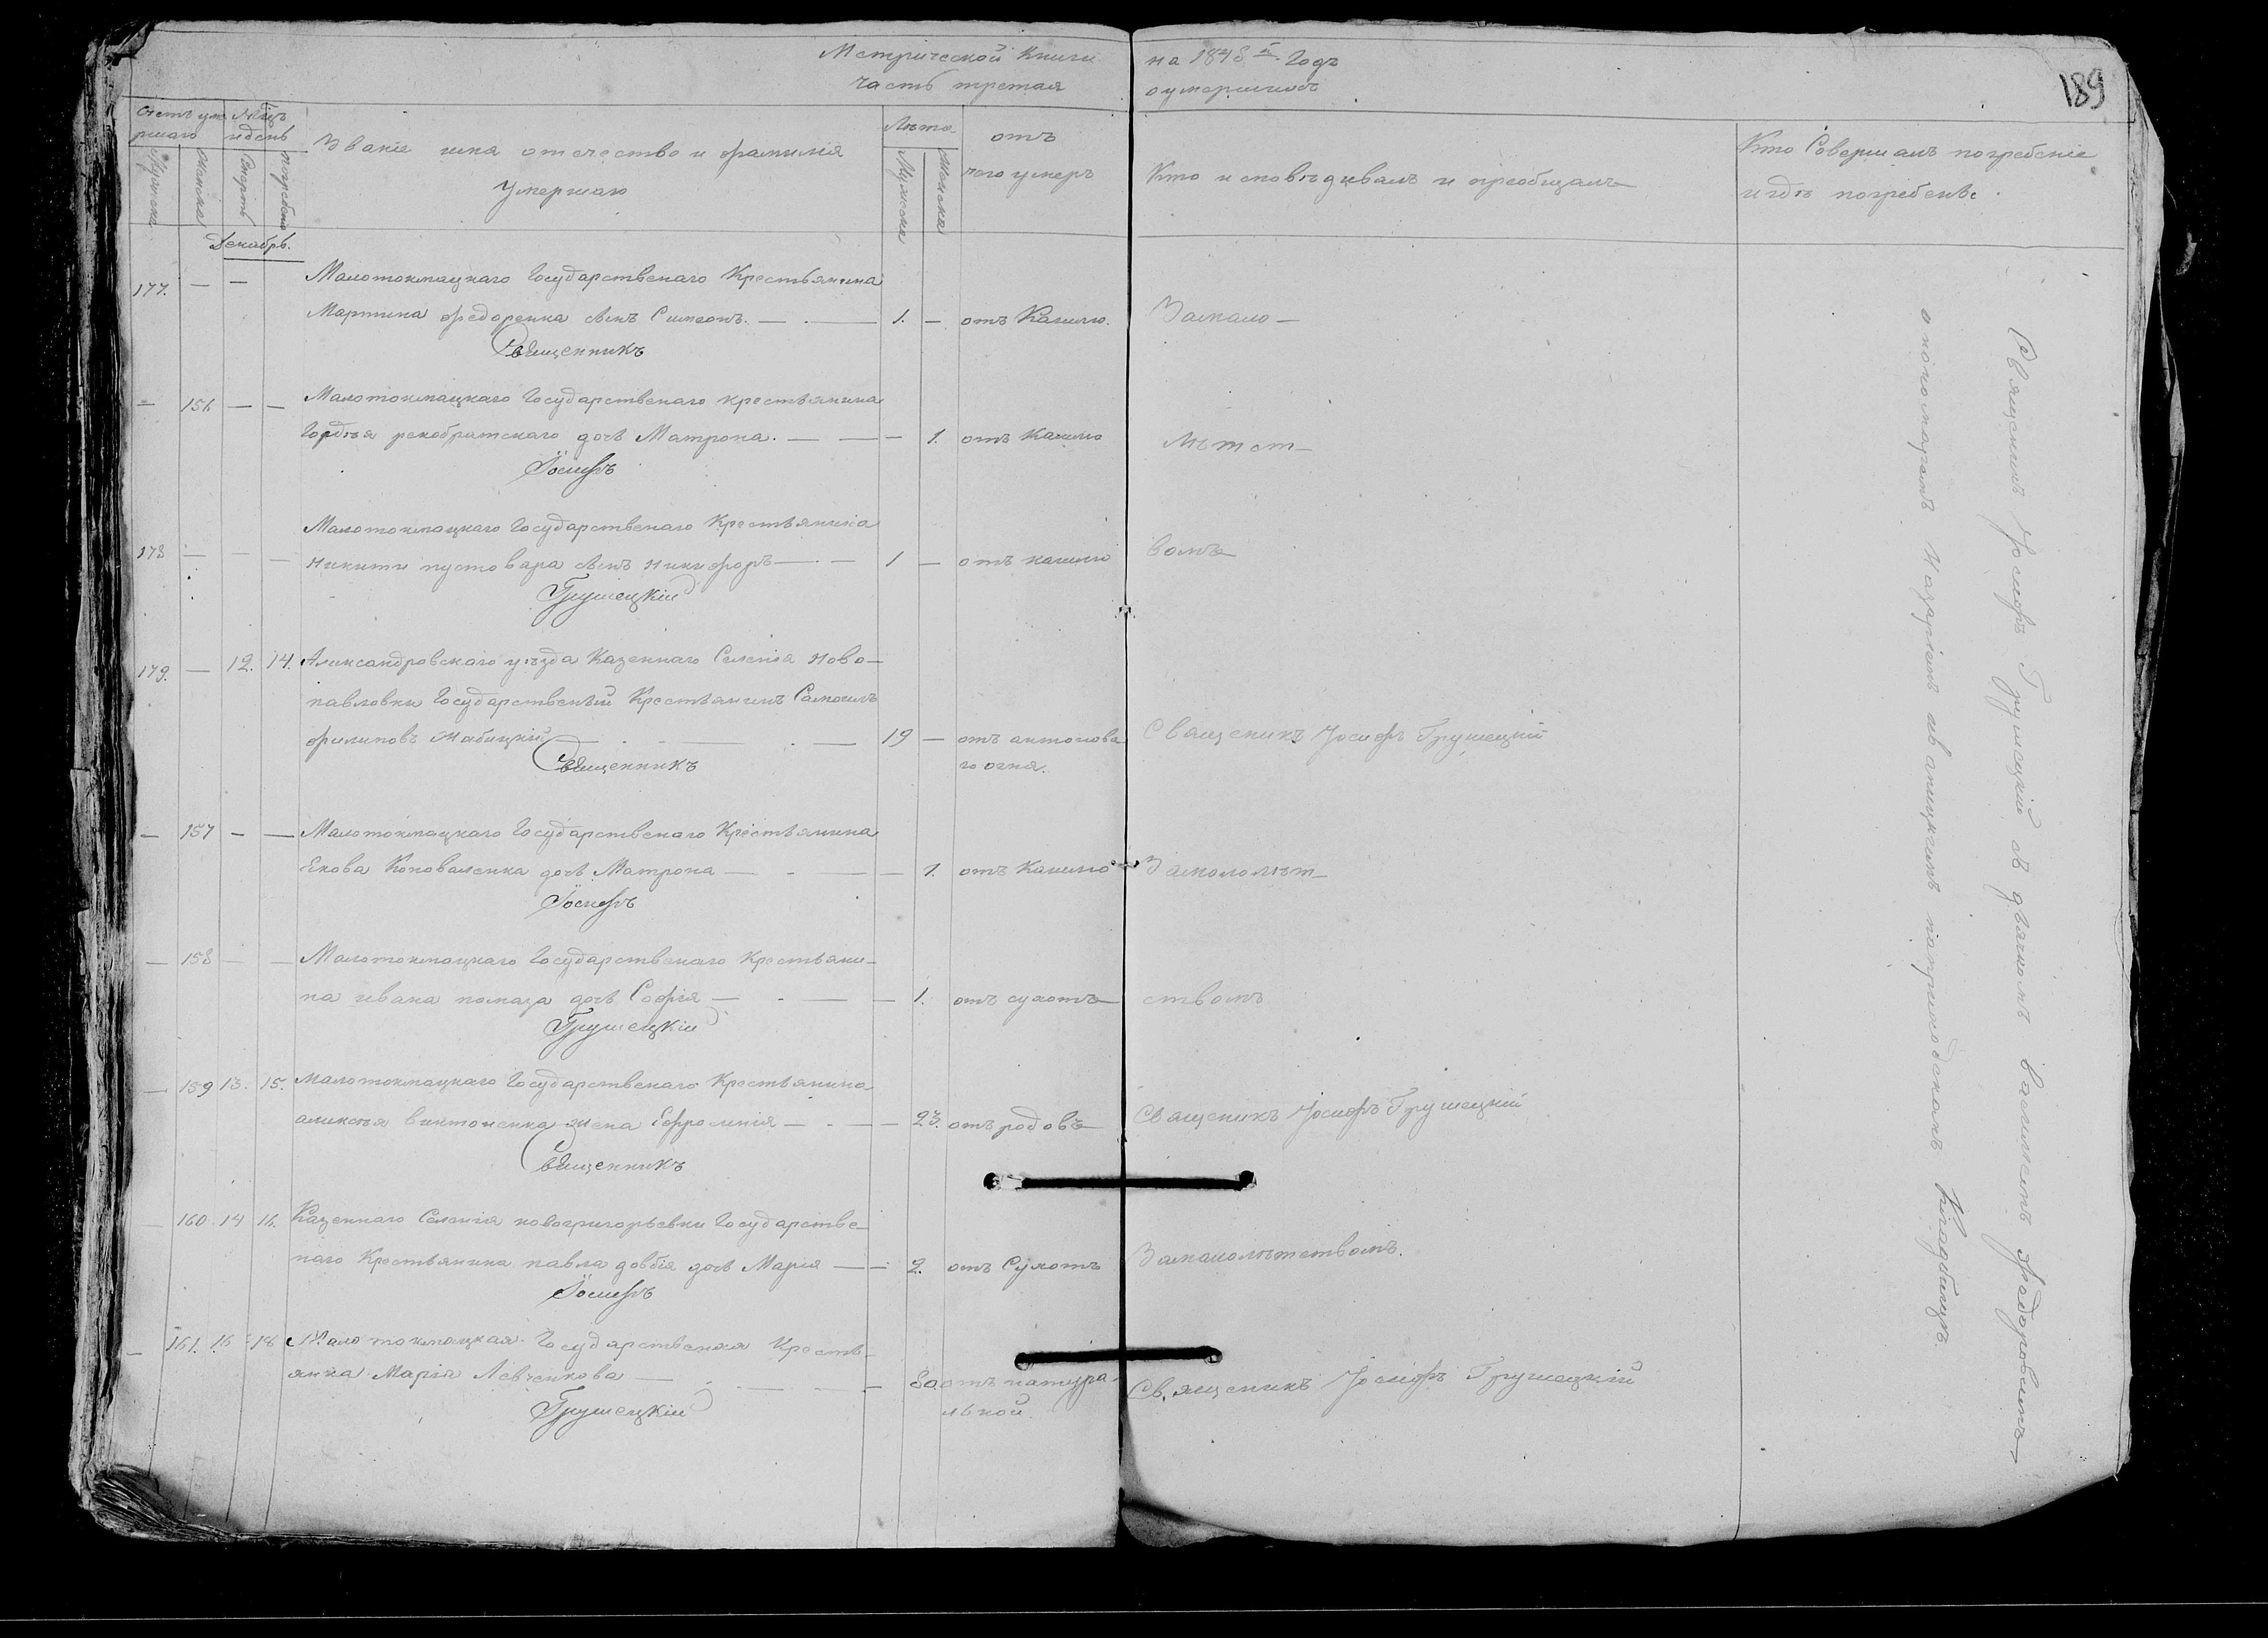 Метрической Книги на 1848й Годъ
часть третая о умершихъ
189
Счетъ уме
ршаго
Мужеска
Женска
Мѣсцъ
и день
Смерть
погребения
Званіе имя отечество и фамилія
умершаго
Лѣта
Мужеска
Женска
отъ
чего умеръ
Кто исповѣдивалъ и приобщалъ
Кто Совершалъ погребеніе
и гдѣ погребенъ.
Декабрь.
Малотокмацкаго Государственаго Крестьянина
177. — — Мартина Федоренка сынъ Симеонъ. — 1. — отъ Кашлю. Замало—
Священникъ
— 156 — — Малотокмацкаго Государственаго крестьянина
Гордѣя дочь Матрона. — — 1. отъ Кашлю лѣтст—
Іосифъ
Малотокмацкаго Государственаго Крестьянина
178 — — — Никити пустовара сынъ Никифоръ — 1 — отъ кашлю вомъ
Грушецкій
179. — 12. 14. Александровскаго уѣзда Казеннаго Селенія Ново—
павловки Государственый Крестьянинъ Самоилъ
филиповъ Жабицкій — 19 — отъ антонова Священикъ Іосифъ Грушецкій
го огня.
Священникъ
— 157 — — Малотокмацкаго Государственаго Крестьянина
Екова Коноваленка дочь Матрона — — 1. отъ Кашлю Замололѣт—
Іосифъ
— 158 — — Малотокмацкаго Государственаго Крестьяни—
на ивана помаза дочь Софія — — 1. отъ сухотъ ствомъ
Грушецкій
— 159 13. 15. Малотокмацкаго Государственаго Крестьянина
аликсѣя виктоненка жена Ефросинія — — 23. отъ родовъ Священикъ Іосифъ Грушецкій
Священникъ
— 160 14 16. Казеннаго Селенія новогригорьевки Государстве—
наго Крестьянина павла довбія дочь Марія — — 2. отъ Сухотъ Замалолѣтствомъ.
Іосифъ
— 161. 16 18 Малотокмацкая Государственая Кресть—
янка Марія Левченкова — — 80 отъ натура Священикъ Іосифъ Грушецкій
льной.
Грушецкій
Священикъ Іосифъ Грушецкій съ дьякомъ василіемъ Федоровымъ
и Назаріемъ на приходскомъ Кладбищѣ.